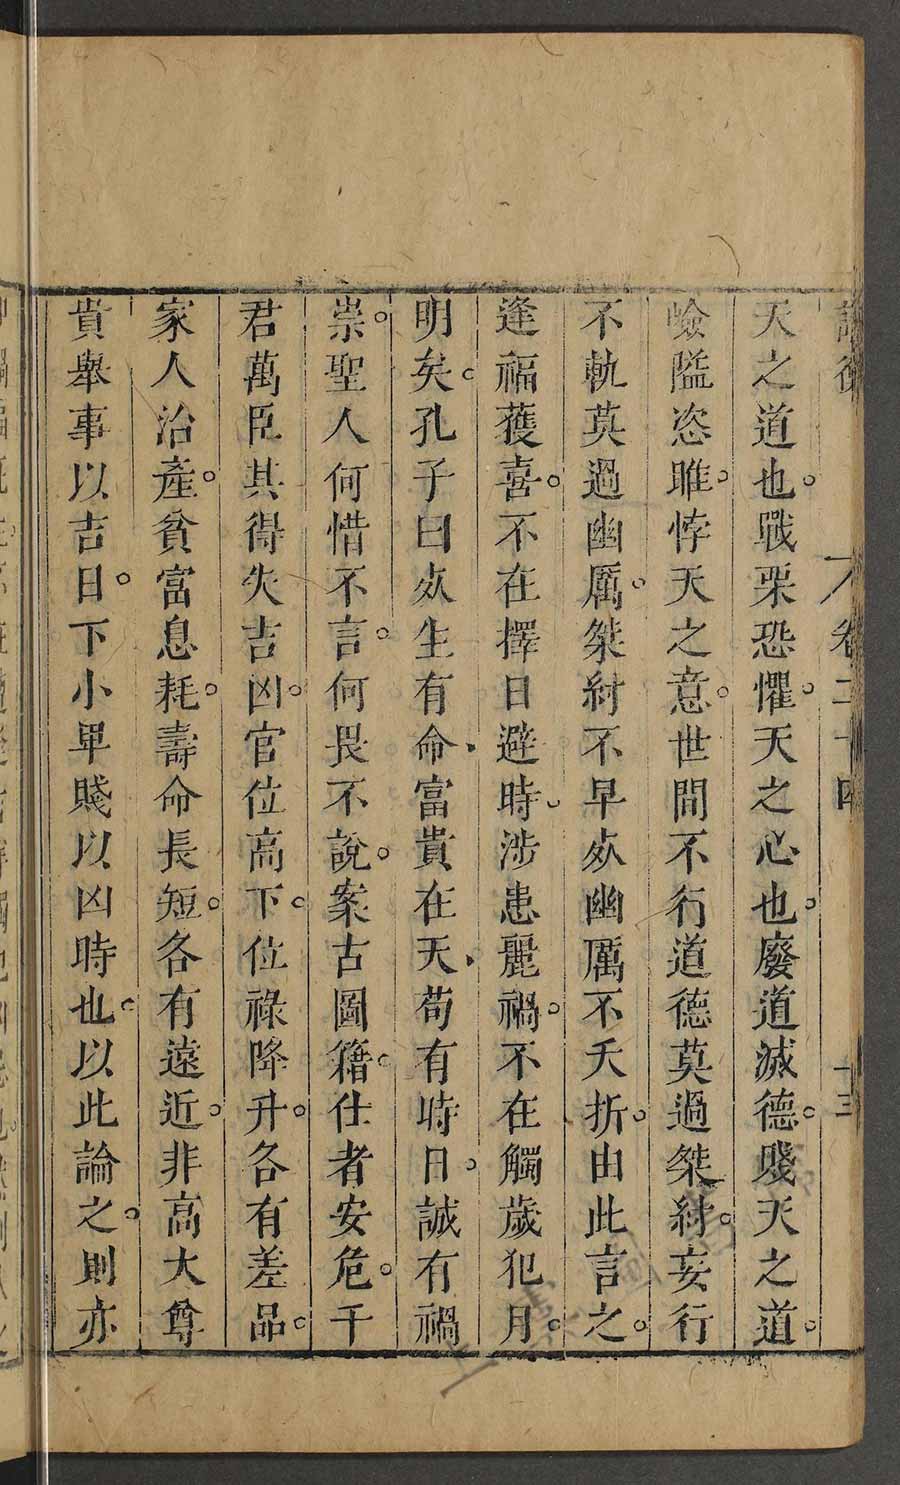 論衡 卷二十四 十三
天之道也。戰栗恐懼。天之心也。廢道滅德。賤天之道。
嶮隘恣睢。悖天之意。世間不行道德莫過桀紂。妄行
不軌莫過幽厲。桀紂不早死幽厲不夭折。由此言之。
逢福獲喜。不在擇日避時、涉患麗禍。不在觸歲犯月。
明矣。孔子曰死生有命、富貴在天、苟有時日。誠有禍
祟。聖人何惜不言。何畏不說。案古圖籍。仕者安危。千
君萬臣其得失吉凶。官位高下。位祿降升。各有差品。
家人治產。貧富息耗。壽命長短。各有遠近。非高大尊
貴舉事以吉日。下小卑賤以凶時也。以此論之。則亦